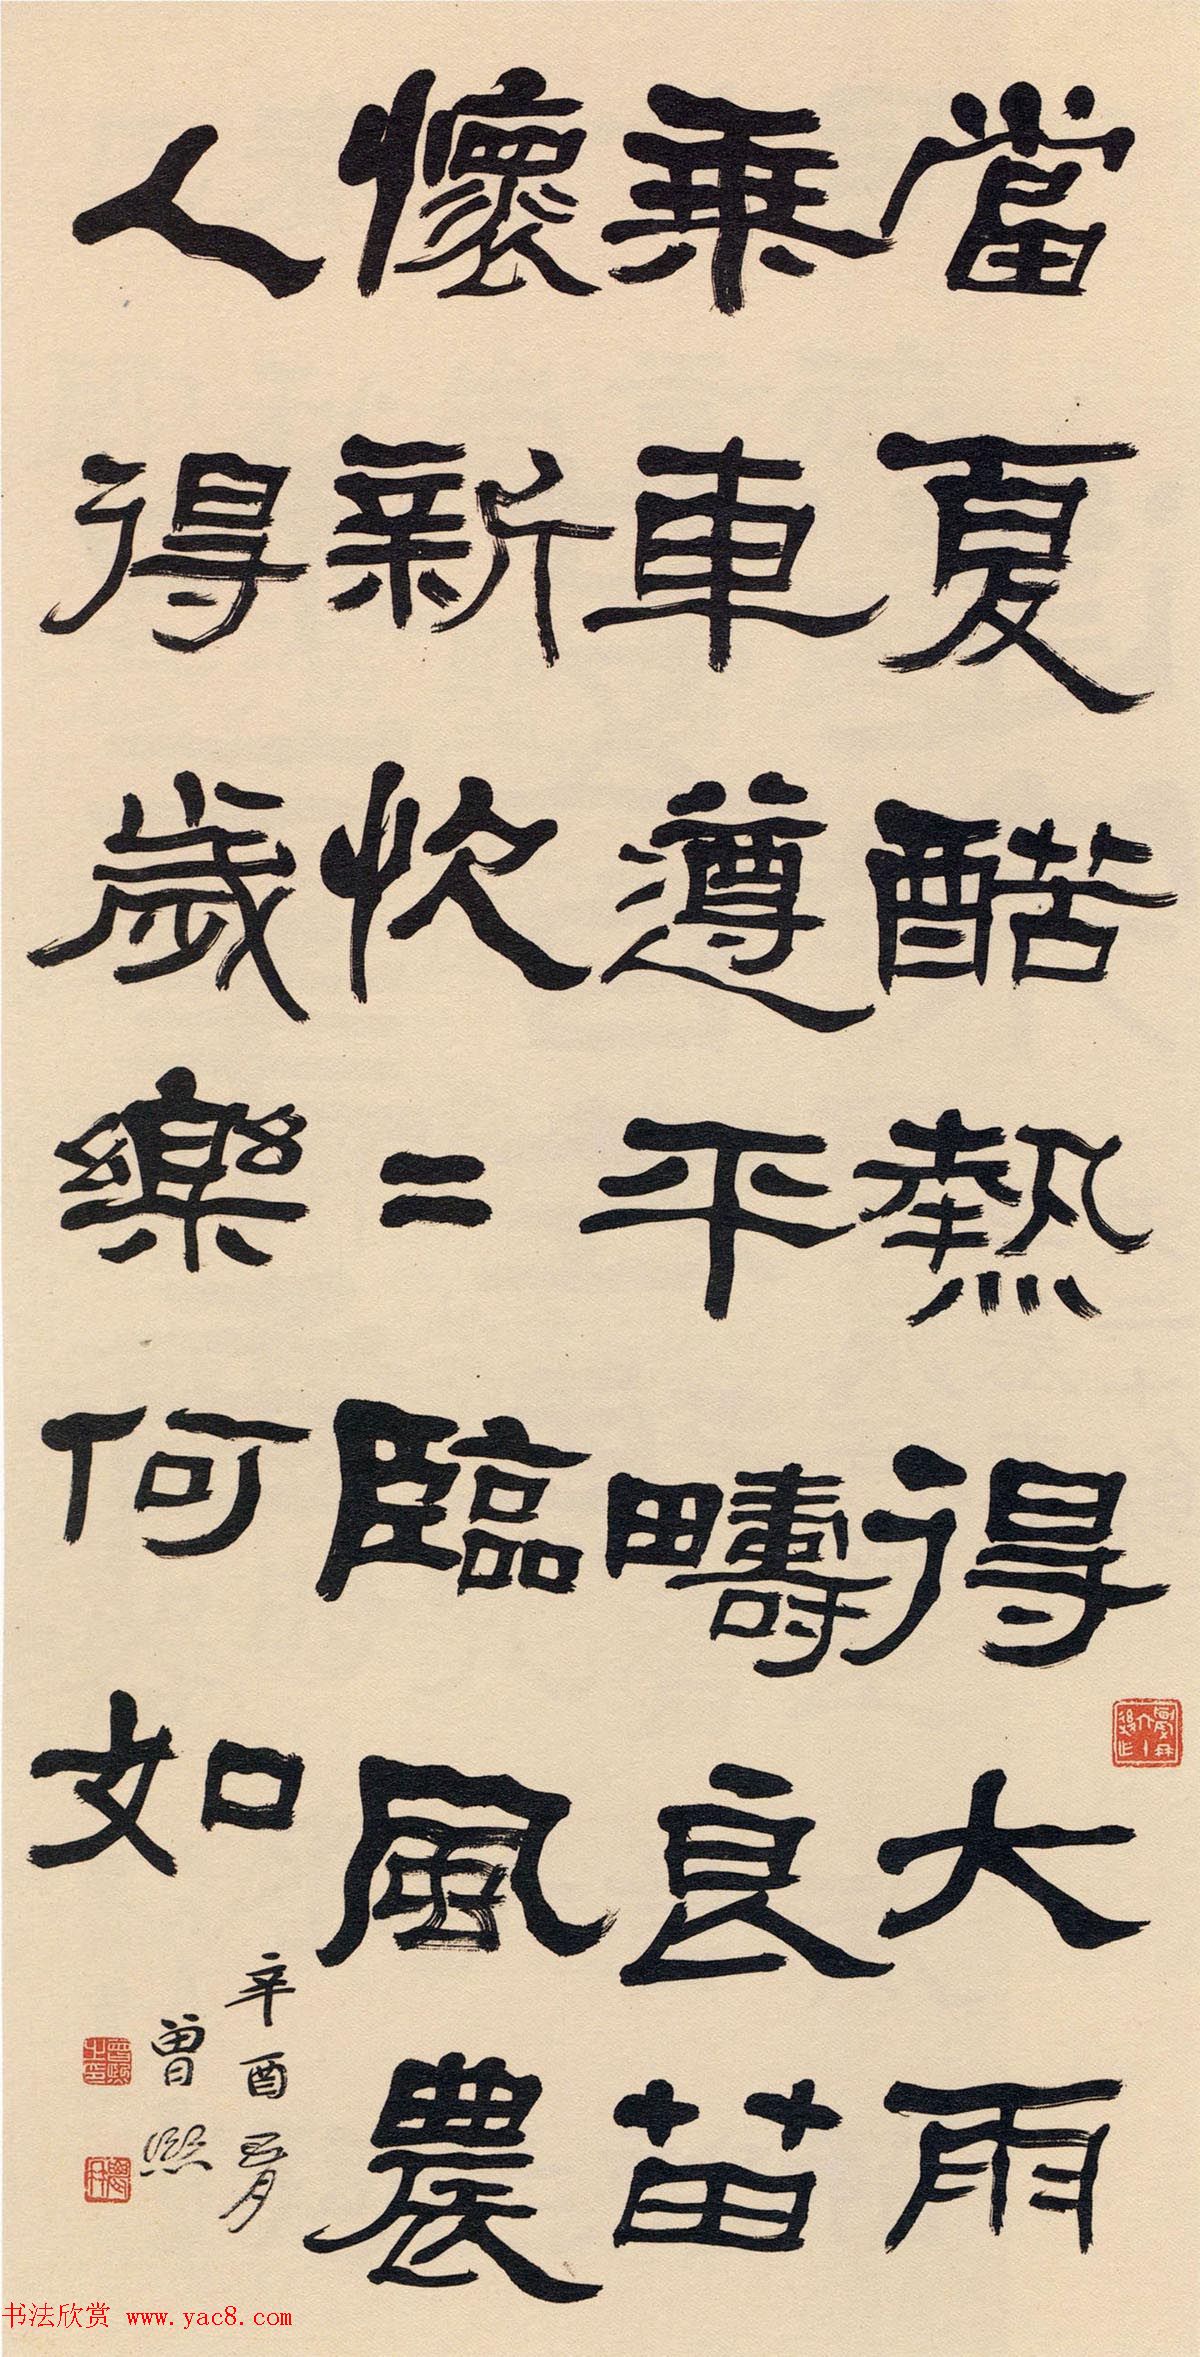 當夏酷熱得大雨
乘車遵平疇良苗
懷新忺=臨風農
人得歲樂何如
辛酉五月
曾熙
曾熙之印
书法欣赏 www.yac8.com